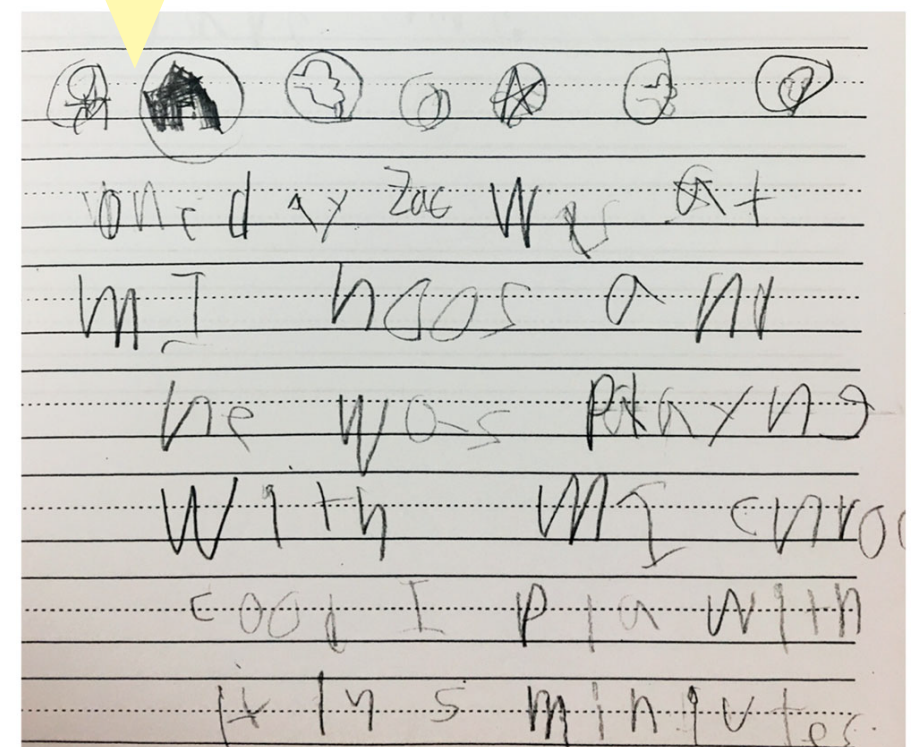 one day Zac Was at
mI hoos a nd
he was playng
With MI
cood I pla with
it In 5 minutes.